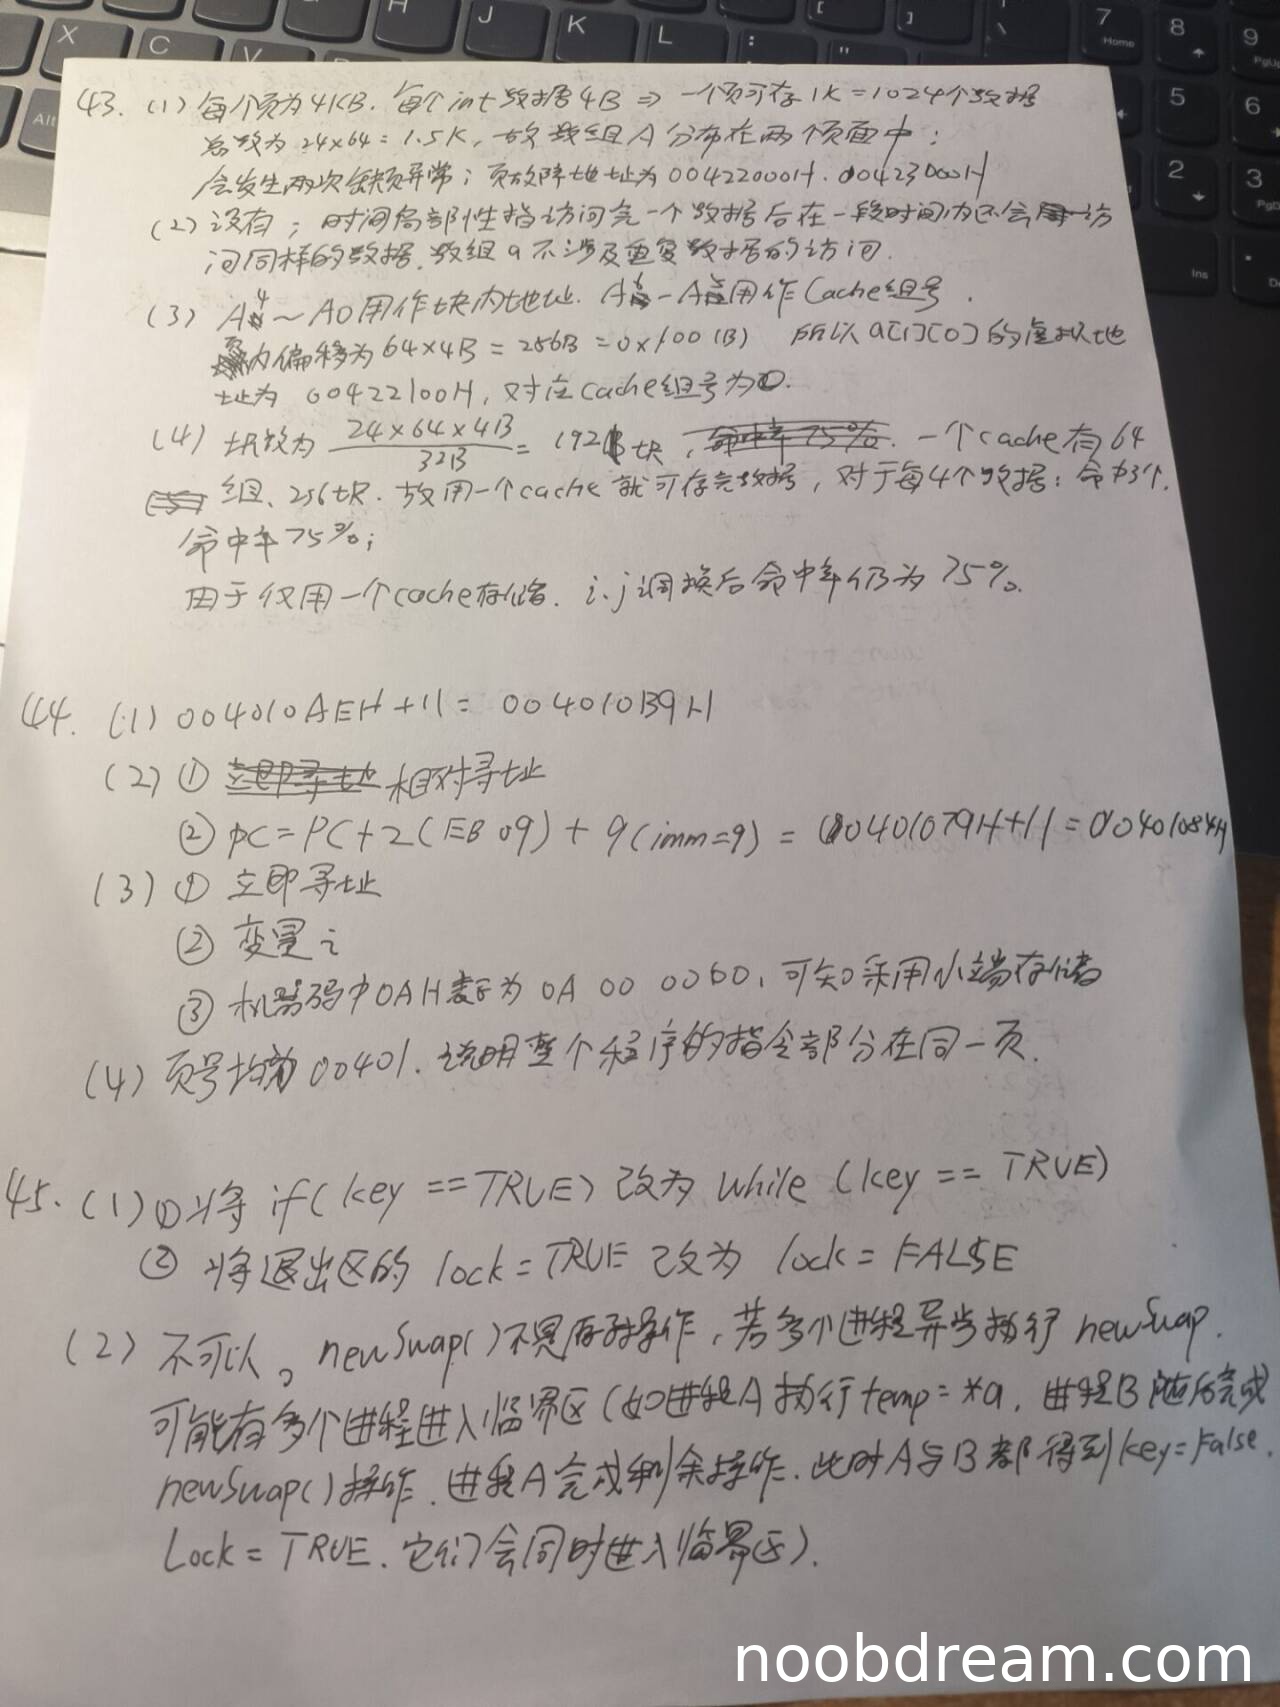 43. (1) 每个页为4KB. 每个int数据4B ⇒ 一个页可存1K=1024个数据
总数为 24×64=1.5K, 故数组A分布在两个页面中;
会发生两次缺页异常; 页故障地址为00422000H. 00423000H
(2) 没有; 时间局部性指访问完一个数据后在一段时间内还会访
问同样的数据. 数组a不涉及重复数据的访问.
(3) A4 ~ A0用作块内地址. A - A用作Cache组号.
内偏移为64×4B = 256B = 0x100(B) 所以a[1][0]的虚拟地
址为 00422100H, 对应cache组号为0.
(4) 块数为 24×64×4B / 32B = 192块, 命中率75%. 一个cache有64
组、256块. 故用一个cache就可存完数据, 对于每4个数据: 命中3个.
命中率75%;
由于仅用一个cache存储. i.j调换后命中率仍为75%.
44. (1) 004010AEH+11= 004010B9H
(2) ① 立即寻址 相对寻址
② PC=PC+2(EB 09)+9(imm=9) = 00401079H+11=00401084H
(3) ① 立即寻址
② 变量i
③ 机器码中0AH表示为 0A 00 00 00, 可知采用小端存储
(4) 页号均为00401. 说明整个程序的指令部分在同一页.
45. (1) ①将 if(key ==TRUE) 改为 while (key == TRUE)
② 将退出区的 lock=TRUE 改为 lock = FALSE
(2) 不可以。newSwap()不是原子操作, 若多个进程异步执行 newSwap.
可能有多个进程进入临界区(如进程A执行temp=*a. 进程B随后完成
newSwap()操作. 进程A完成剩余操作. 此时A与B都得到key=False.
Lock= TRUE. 它们会同时进入临界区).
noobdream.com